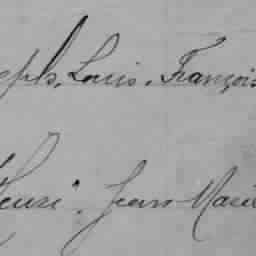 eph, Louis, François
Henri, Jean Marie